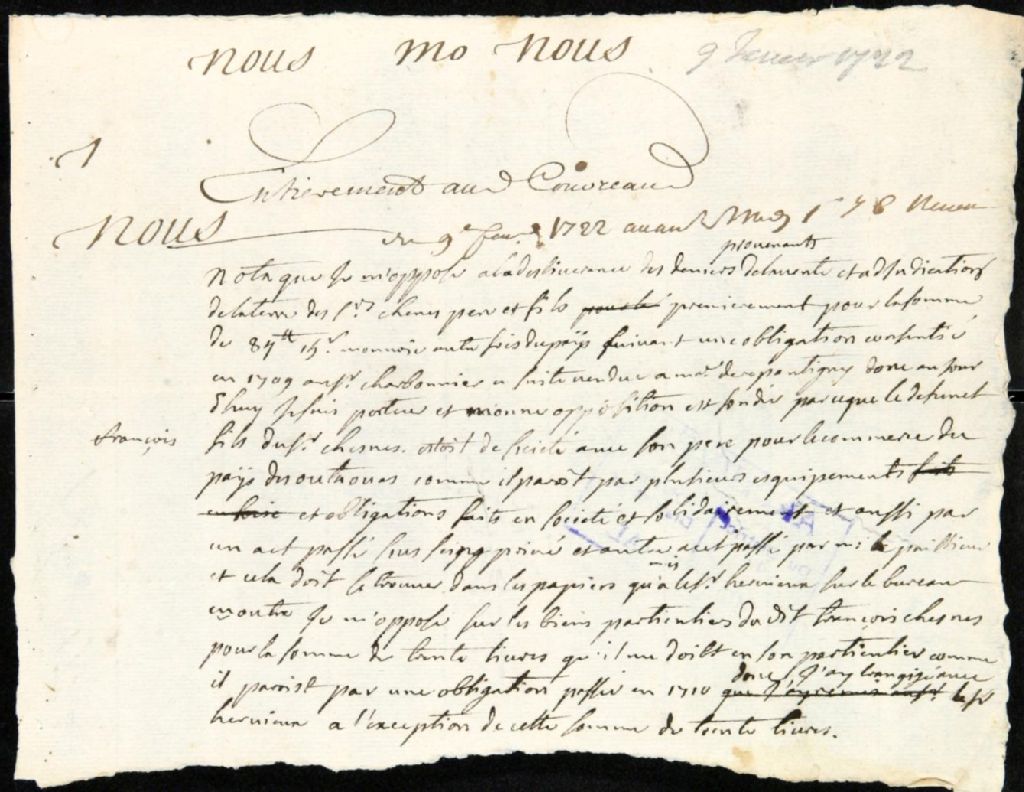 nous mo nous
9 fevrier 1722
1
Entierement aud Couvreaud
nous
du 9e fev. 1722 avant Midy
provenants
nota que Je m'oppose a la deslivrance des deniers de la vente et adJudication
de la terre des Srs chenes pere et fils pour la premierement pour la somme
de 84tt 15s. monnoie autre fois du pays suivant une obligation consentie
en 1709 au sr. charbonnier en suite vendue a mr. de repentigny donc au Jour
d'huy Je suis porteur et mionne opposition est fondée parceque le defunct
françois
fils du sr. chesnes. estoit de societé avec son pere pour le commerce du
pays des outaouas comme il paroît par plusieurs esquipements faits
en loise et obligations faits en societé et solidairement et aussi par
un act passé sous seing privé et autre act passé par me le pailleur
mis
et cela doit se trouver dans les papiers qu'a le sr. hervieux sur le bureau
en outre Je m'oppose sur les biens particuliers du dit francois chesnes
pour la somme de trente livres qu'il me doibt en son particulier comme
donc J'ay transigé avec
il paroist par une obligation passée en 1718 que J'ay remis au sr le sr
hervieux a l'exception de cette somme de trente livres.